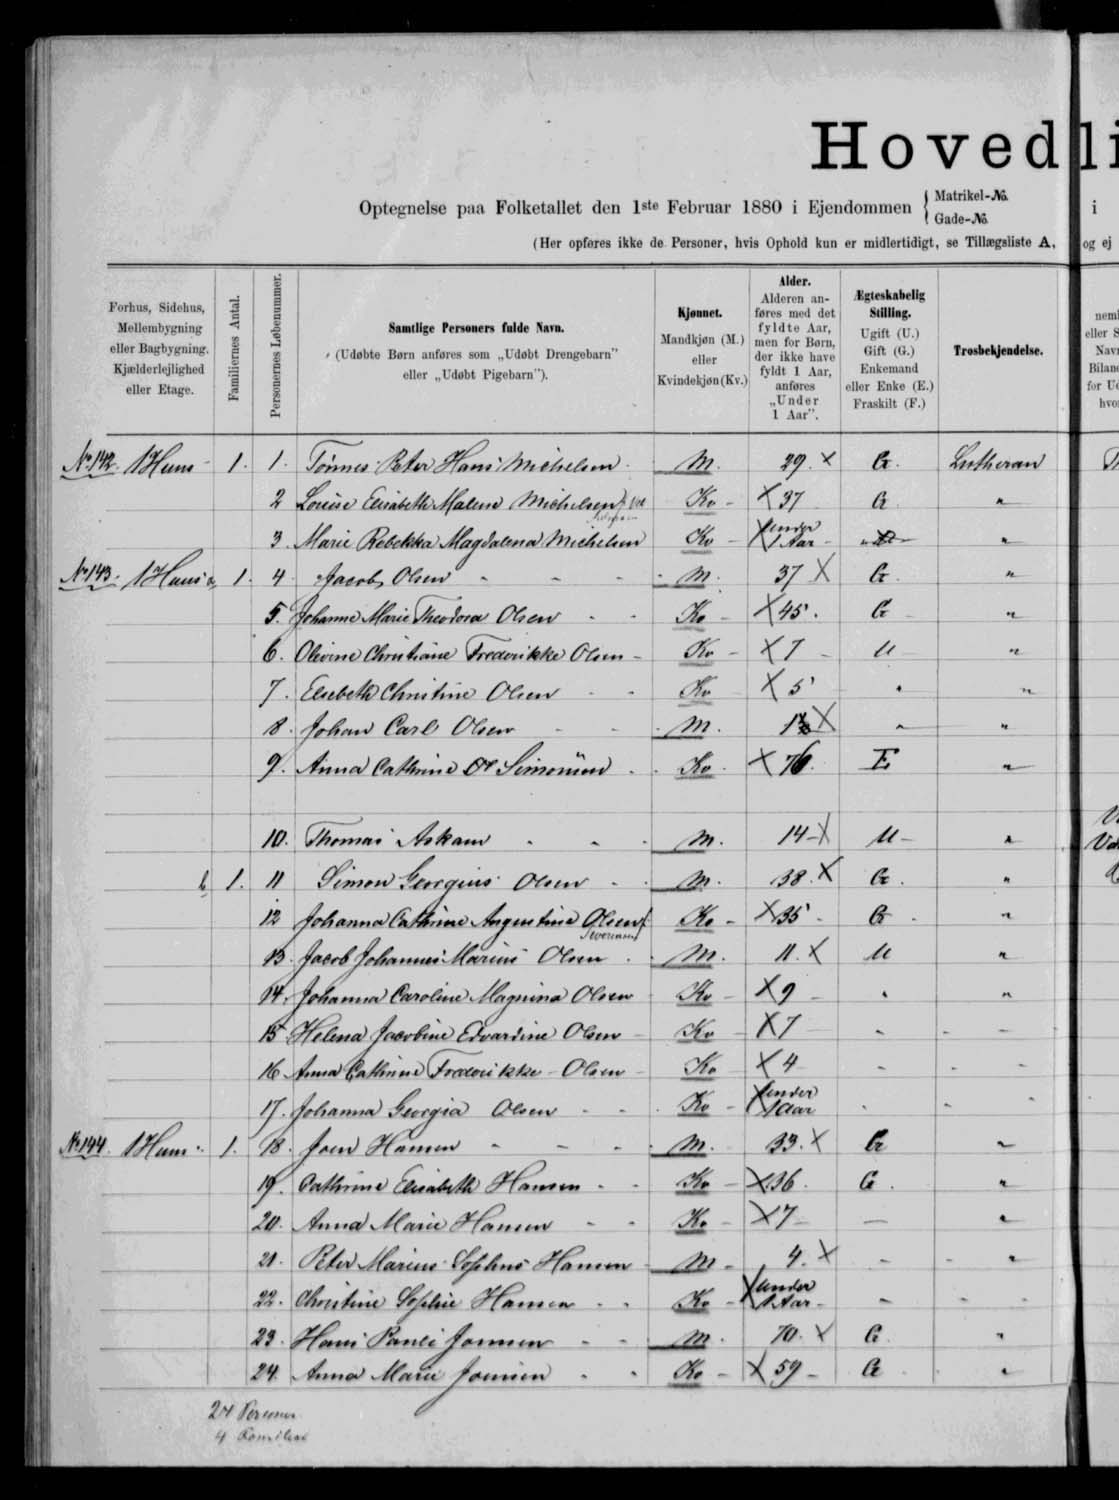 Hovedli
Optegnelse paa Folketallet den 1ste Februar 1880 i Ejendommen { Matrikel-No. Gade-No. i
(Her opføres ikke de Personer, hvis Ophold kun er midlertidigt, se Tillægsliste A, og ej
Forhus, Sidehus, Mellembygning eller Bagbygning. Kjælderlejlighed eller Etage.
Familiernes Antal.
Personernes Løbenummer.
Samtlige Personers fulde Navn.
(Udøbte Børn anføres som „Udøbt Drengebarn" eller „Udøbt Pigebarn").
Kjønnet. Mandkjøn (M.) eller Kvindekjøn (Kv.)
Alder. Alderen anføres med det fyldte Aar, men for Børn, der ikke have fyldt 1 Aar, anføres „Under 1 Aar".
Ægteskabelig Stilling. Ugift (U.) Gift (G.) Enkemand eller Enke (E.) Fraskilt (F.)
Trosbekjendelse.
No 142. 1 Huus - 1. 1. Tønnes Peter Hans Michelsen. M. 29. x G. Lutheran
2 Louise Elisabeth Malene Michelsen Kv - x 37 G "
3. Marie Rebekka Magdalena Michelsen Kv - x under 1 Aar - "
No 143. 1 Huus a, 1. 4. Jacob Olsen - - - M. 37 x G. "
5. Johanne Marie Theodora Olsen - - Kv - x 45. G - "
6. Olivine Christiane Frederikke Olsen - Kv - x 7 - U - "
7. Elsebeth Christine Olsen - - Kv x 5 " "
8. Johan Carl Olsen - - M. x " "
9. Anna Cathrine Simonsen - Kv. x 76. E "
10. Thomas Askam - - - M. 14 - x U - "
b, 1. 11 Simon Georgius Olsen - - M. 38. x G. "
12 Johanna Cathrine Augustine Olsen f. Kv - x 35 - G - "
Sivertsen
13. Jacob Johannes Marius Olsen . M. 11. x U "
14. Johanna Caroline Magnina Olsen Kv - x 9 - " "
15 Helena Jacobine Edvardine Olsen - Kv - x 7 - " - -
16. Anna Cathrine Frederikke - Olsen - Kv - x 4 - - -
17. Johanna Georgia Olsen - - Kv - x under 1 Aar - - "
No 144. 1 Huus - 1. 18. Joen Hansen - - - M. 33. x G "
19. Cathrine Elisabeth Hansen - - Kv - x 36. G. "
20. Anna Marie Hansen - - Kv - x 7 - - "
21. Peter Marius Sophus Hansen M - 4. x - - "
22. Christine Sophie Hansen - - Kv - x under 1 Aar - - - -
23. Hans Pauli Joensen - - M. 70. x G. "
24. Anna Marie Joensen - - Kv - x 59 - G "
24 Personer
4 Familier